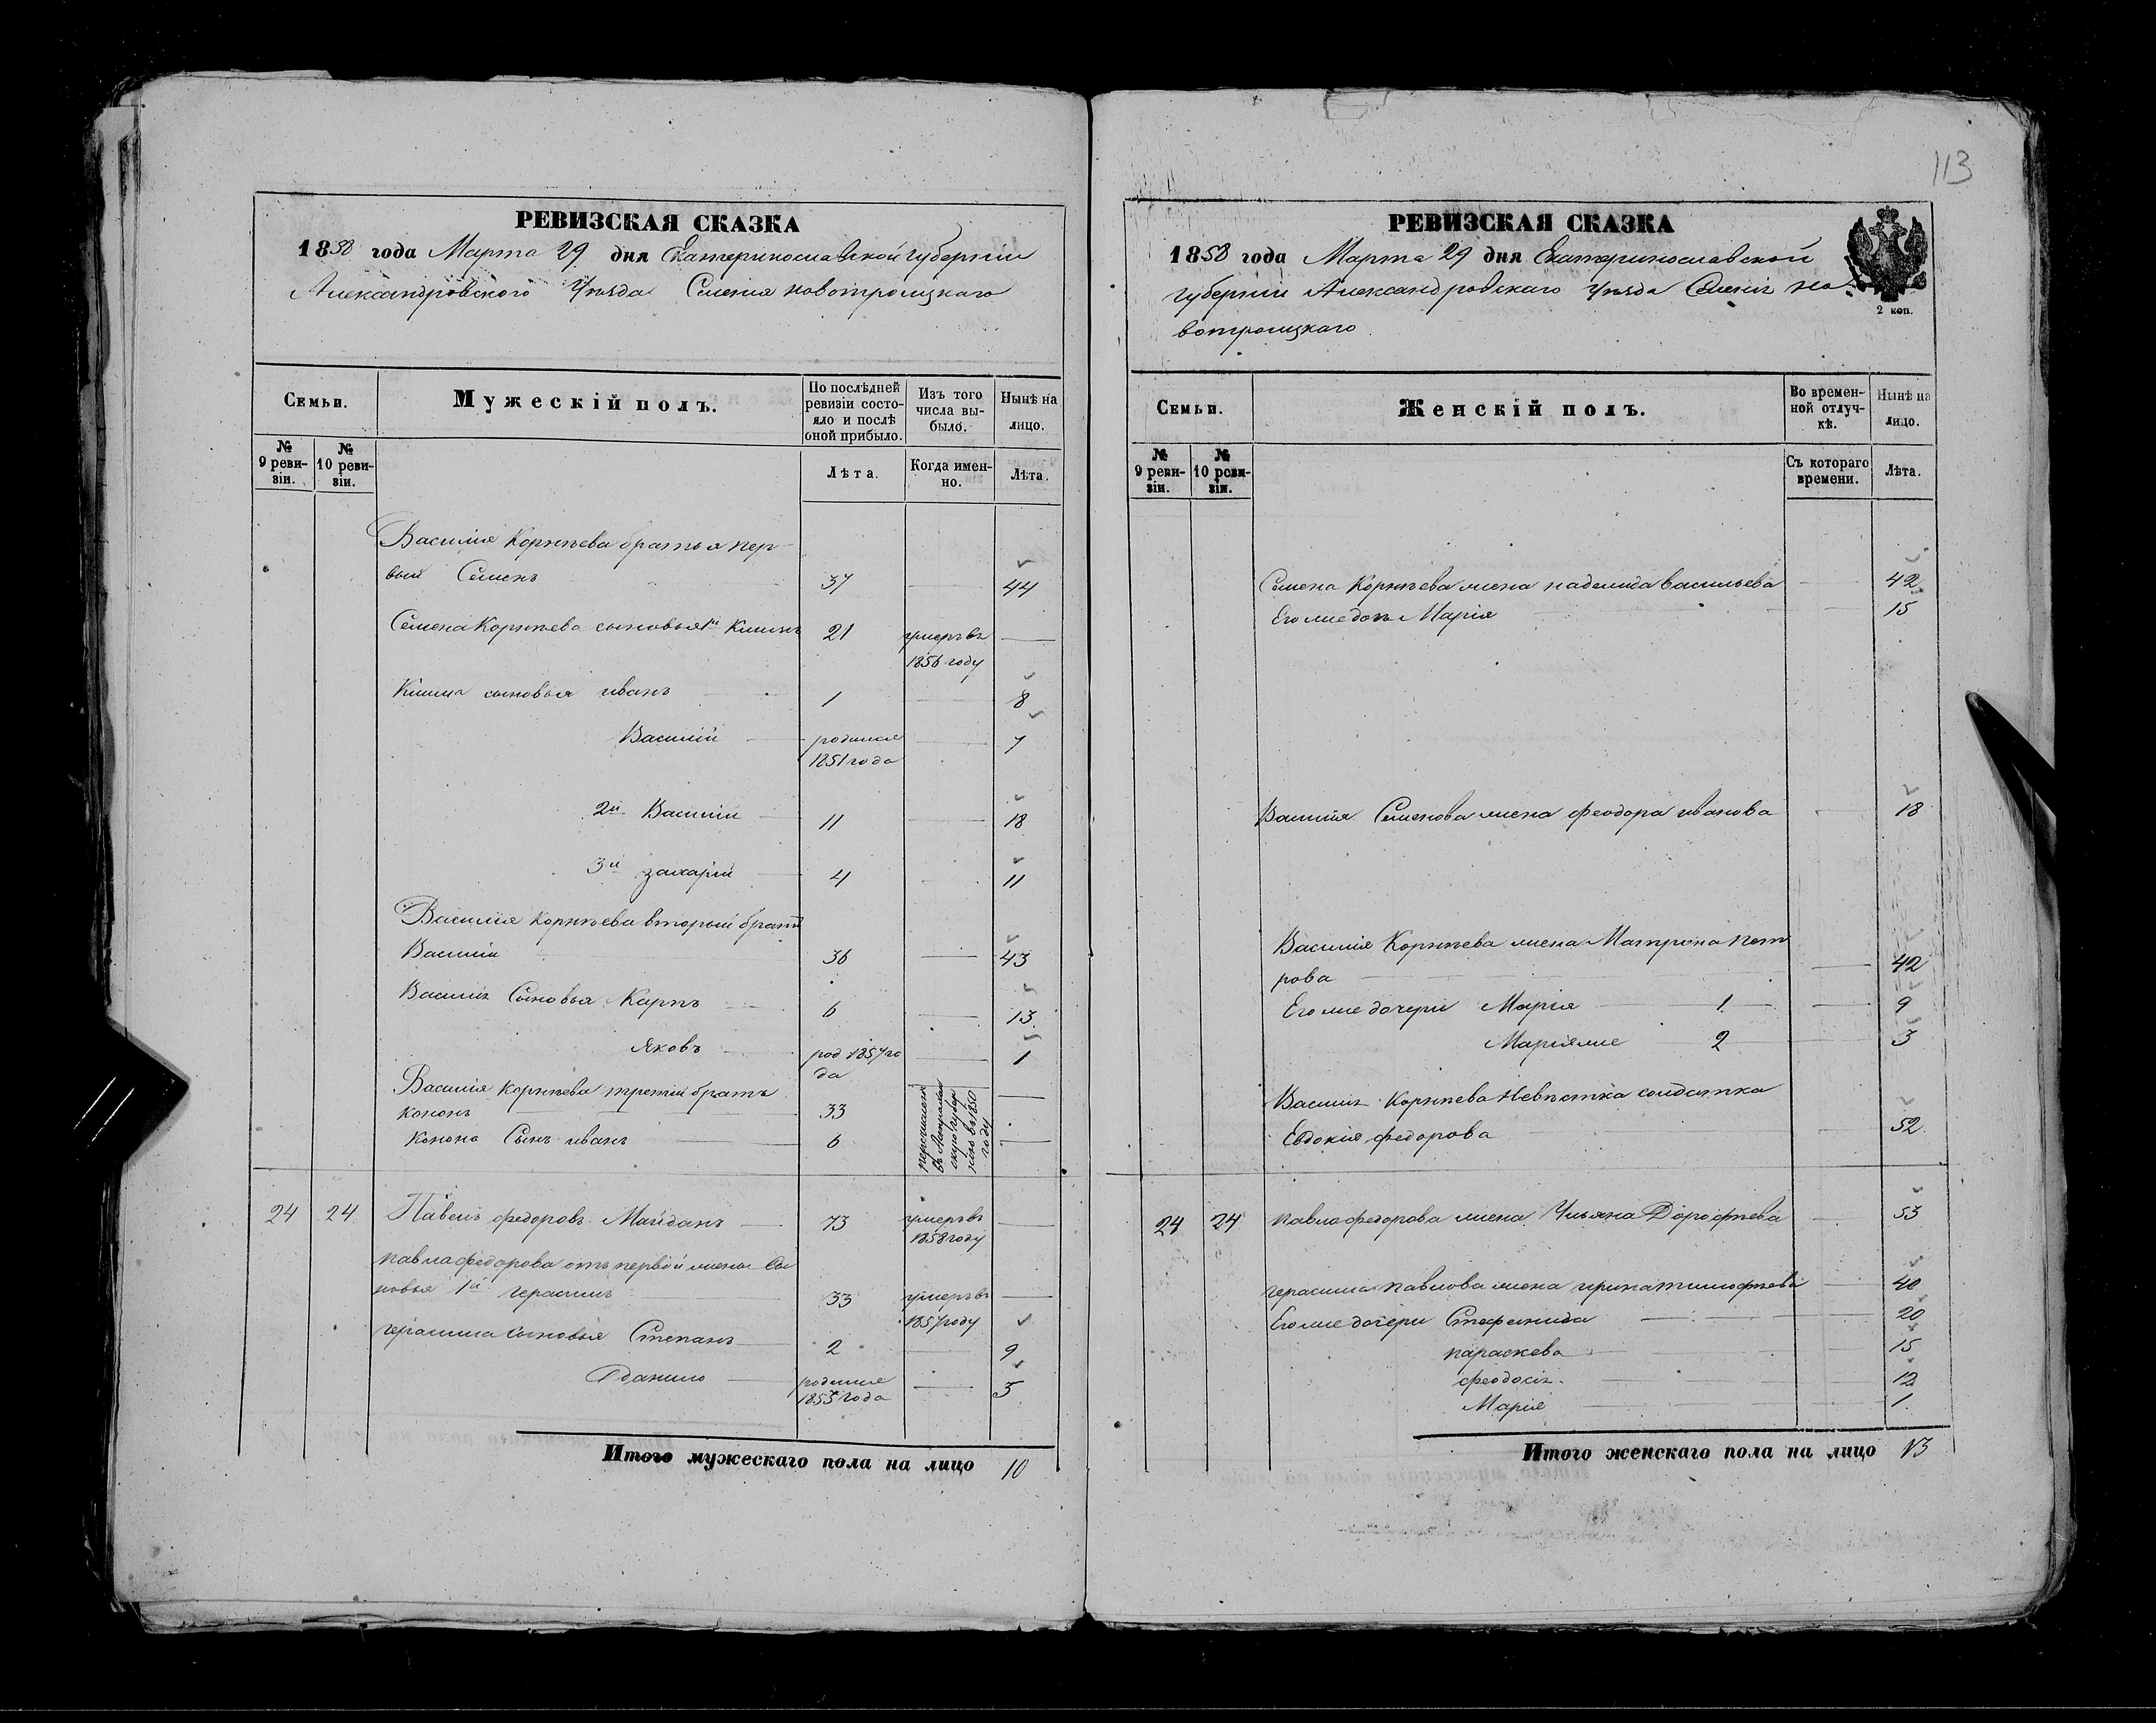 113
РЕВИЗСКАЯ СКАЗКА
1858 года Марта 29 дня Екатеринославской губерніи
Александровского Уѣзда Селенія новотроицкаго
Семьи.
Мужескій полъ.
По послѣдней ревизіи состояло и послѣ оной прибыло.
Изъ того числа выбыло.
Нынѣ на лицо.
№ 9 ревизіи.
№ 10 ревизіи.
Лѣта.
Когда именно.
Лѣта.
Василія Корнѣева братья пер
вый Семенъ 37 — 44
Семена Корнѣева сыновья 1й Климъ 21 умеръ въ 1856 году —
Клима сыновья иванъ 1 — 8
Василій родился 1851 года — 7
2й Василій 11 — 18
3й захарій 4 — 11
Василія Корнѣева вторый братъ
Василій 36 — 43
Василія Сыновья Карпъ 6 — 13
Яковъ род 1857 го да — 1
Василія Корнѣева третій братъ
кононъ 33 —
Конона Сынъ иванъ 6 —
въ 1850 году
24 24 Павелъ федоровъ Майданъ 73 умеръ въ 1858 году —
павла федорова отъ первой жены сы
новья 1й герасимъ 33 умеръ въ 1857 году —
герасима сыновья Степанъ 2 — 9
Данило родился 1853 года — 5
Итого мужескаго пола на лицо 10
РЕВИЗСКАЯ СКАЗКА
1858 года Марта 29 дня Екатеринославской
губерніи Александровскаго Уѣзда Селенія но
вотроицкаго
2 коп.
Семьи.
Женскій полъ.
Во временной отлучкѣ.
Нынѣ на лицо.
№ 9 ревизіи.
№ 10 ревизіи.
Съ котораго времени.
Лѣта.
Семена Корнѣева жена Васильева — 42
Его же дочь Марія — 15
Василія Семенова жена феодора иванова — 18
Василія Корнѣева жена Матрона пет
рова — 42
Его же дочери Марія 1 — 9
2 — 3
Василія Корнѣева Невѣстка солдатка
Евдокія федорова — 52
24 24 павла федорова жена Ульяна Дорофѣева — 53
герасима павлова жена ирина тимофѣева — 40
Его же дочери Стефанида — 20
параскева — 15
феодосія — 12
Марія — 1
Итого женскаго пола на лицо 13